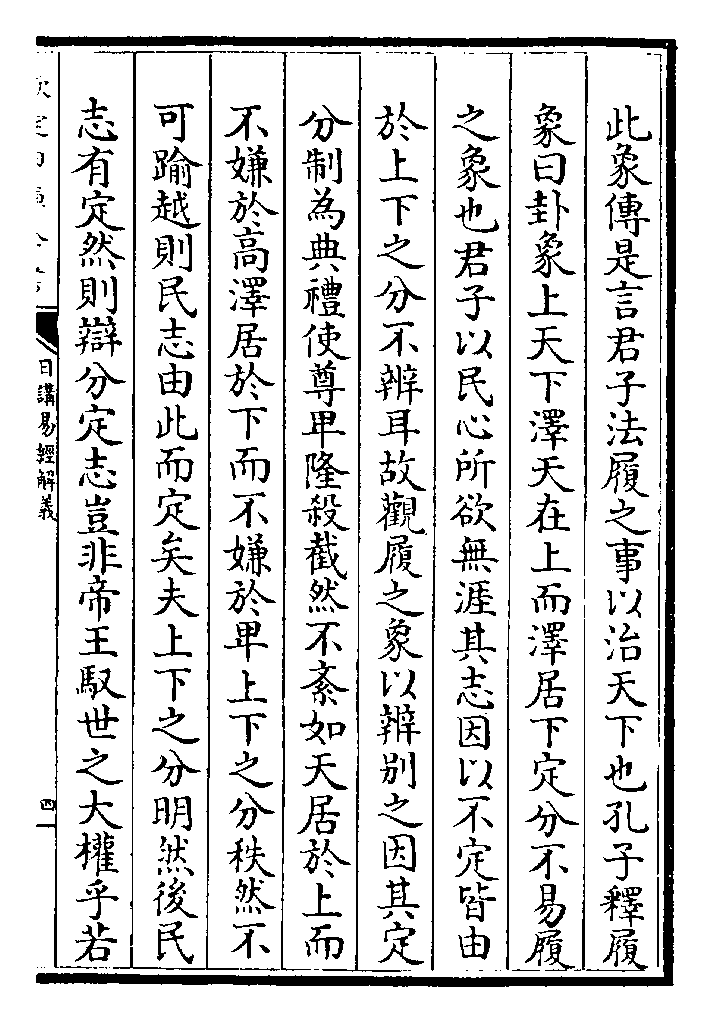 此象傳是言君子法履之事以治天下也孔子釋履
象曰卦象上天下澤天在上而澤居下定分不易履
之象也君子以民心所欲無涯其志因以不定皆由
於上下之分不辨耳故觀履之象以辨別之因其定
分制為典禮使尊卑隆殺截然不紊如天居於上而
不嫌於高澤居於下而不嫌於卑上下之分秩然不
可踰越則民志由此而定矣夫上下之分明然後民
志有定然則辯分定志豈非帝王馭世之大權乎若
欽定四庫全書
日講易經解義
四